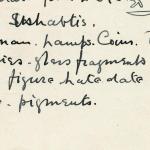 Ushabtis.
man. Lamps. Coins.
ies. glass fragments
figure late date
pigments.